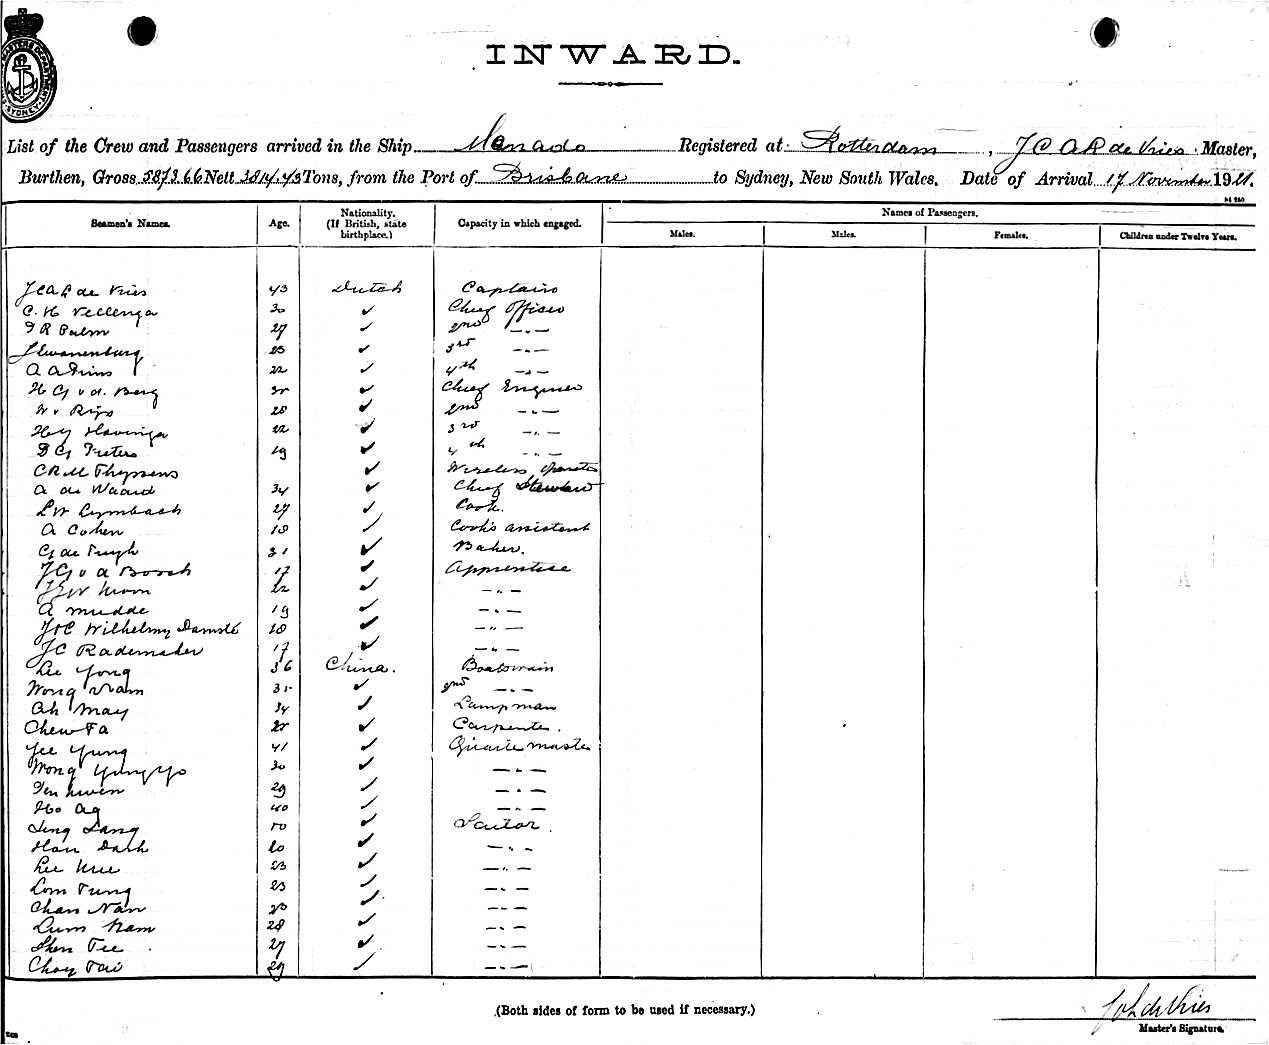 INWARD.
List of the Crew and Passengers arrived in the Ship Menado Registered at Rotterdam, J C A R de Vries Master,
Burthen, Gross 5873.66 Nett Tons, from the Port of Brisbane to Sydney, New South Wales. Date of Arrival 17 November 1921.
Seamen's Names. Age. Nationality. (If British, state birthplace.) Capacity in which engaged. Names of Passengers.
Males. Males. Females. Children under Twelve Years.
de Vries 43 Dutch Captain
C. H. Vellenga 30 ✓ Chief Officer
R Palm 27 ✓ 2nd -"-
Swanenburg 23 ✓ 3rd -"-
A A 22 ✓ 4th -"-
H G v d. Berg ✓ Chief Engineer
W v 28 ✓ 2nd -"-
Havinga 22 ✓ 3rd -"-
19 ✓ 4th -"-
C R M Thyssens ✓ Wireless Operator
A de Waard 34 ✓ Chief Steward
27 ✓ Cook.
A Cohen 18 ✓ Cook's assistent
G de 31 ✓ Baker.
J G v d Bosch 17 ✓ Apprentice
22 ✓ -"-
A Mudde 19 ✓ -"-
Wilhelmy Damsté 18 ✓ -"-
J C Rademaker 17 ✓ -"-
Lee Yong 36 China. Boatswain
Wong 31 ✓ 2nd -"-
Ah May 34 ✓ Lampman
Chew Fa ✓ Carpenter.
Yee Yung 41 ✓ Quartermaster
Wong 30 ✓ -"-
29 ✓ -"-
Ho 40 ✓ -"-
Lang ✓ Sailor.
Han 20 ✓ -"-
Lee 23 ✓ -"-
Lom Tung 23 ✓ -"-
Chan Nan ✓ -"-
Lum Nam 28 ✓ -"-
Tee 27 ✓ -"-
Choy Tai 29 ✓ -"-
(Both sides of form to be used if necessary.)
de Vries
Master's Signature.